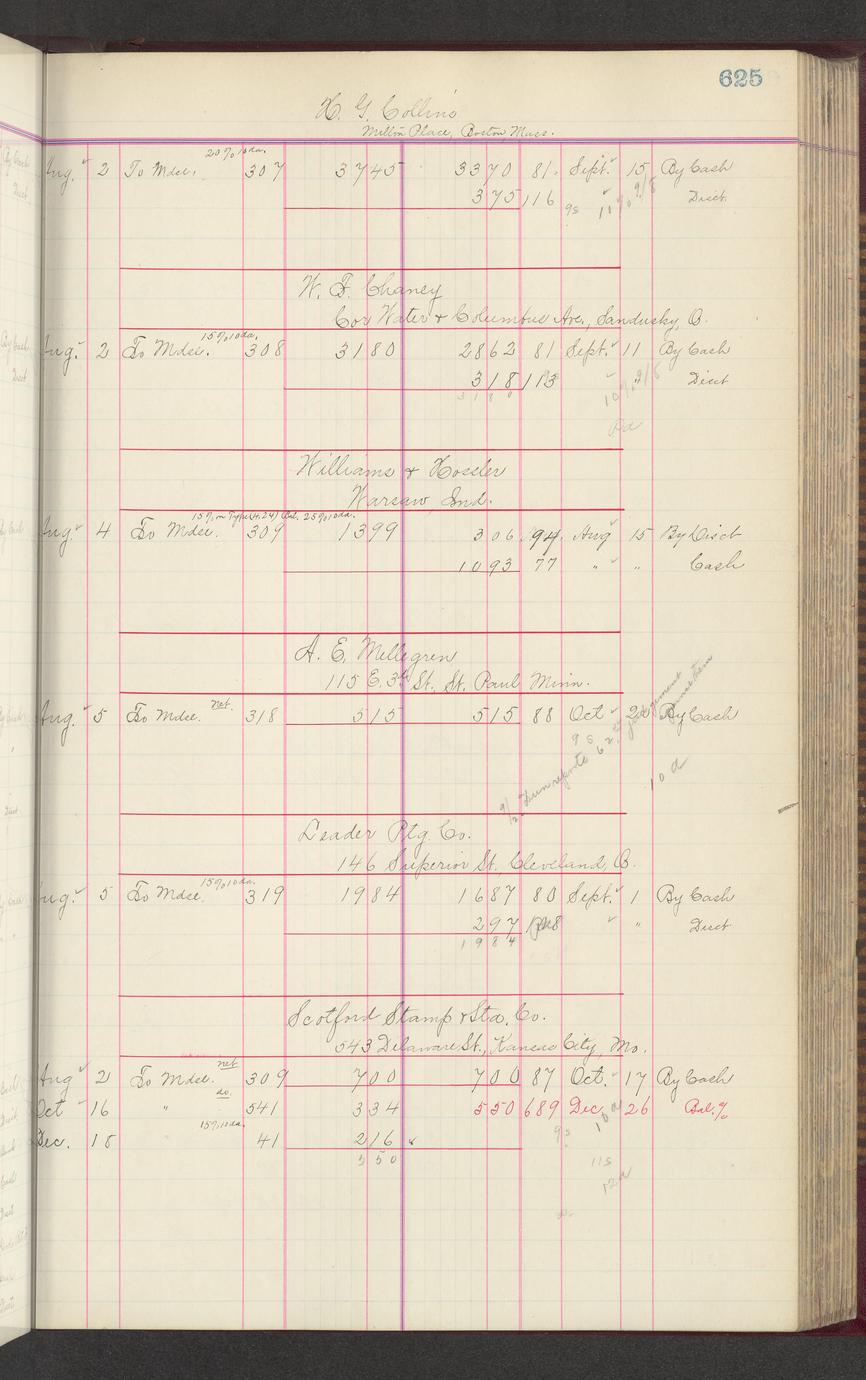 625
H. G. Collins
Milton Place, Boston Mass.
20% 10 da.
Aug. 2 To Mdse. 307 3745 3370 81 Sept. 15 By Cash
375 116 9s 11% 9/8 Disct.
W. F. Chaney
Cor Water & Columbus Ave., Sandusky, O.
15% 10 da.
Aug. 2 To Mdse. 308 3180 2862 81 Sept. 11 By Cash
318 113 10% 9/8 " Disct
3180
Pd
Williams & Hosler
Warsaw Ind.
15% on Type (4.24) Bal. 25% 10 da.
Aug. 4 To Mdse. 309 1399 306 94 Aug 15 By Disct
1093 77 " " Cash
A. E. Mellegren
115 E. 3rd St., St. Paul Minn.
Aug. 5 To Mdse. net. 318 515 515 88 Oct 22 By Cash
9s
9/2 Dun reports
10 d
Leader Ptg. Co.
146 Superior St. Cleveland, O.
15% 10 da.
Aug. 5 To Mdse. 319 1984 1687 80 Sept. 1 By Cash
297 " Disct
1984
Scotford Stamp & Sta. Co.
543 Delaware St., Kansas City, Mo.
net
Aug 2 To Mdse. 309 700 700 87 Oct. 17 By Cash
do.
Oct 16 " 541 334 550 689 Dec. 26 Bal. %
15% 10 da.
Dec. 18 41 216
9s 10 d
550
11s
12d